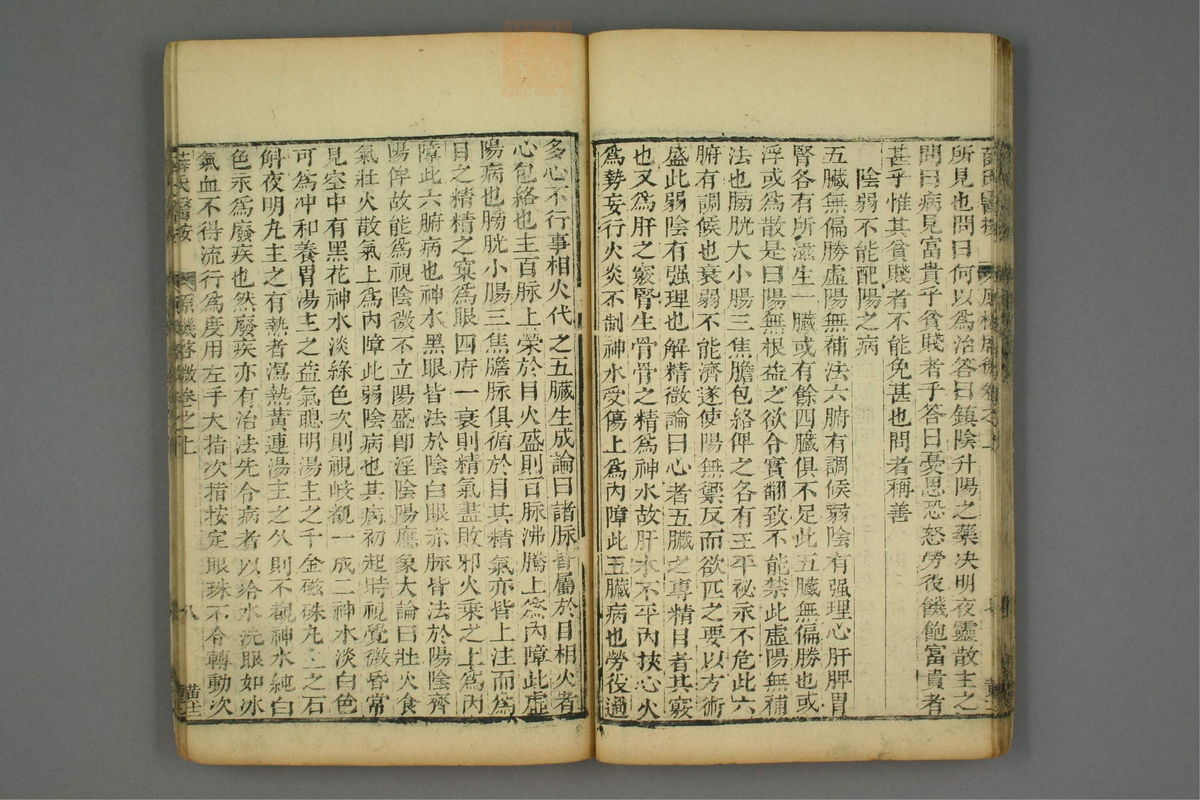 所見也問曰何以爲治答曰鎮陰升陽之藥决明夜靈散主之
問曰病見富貴乎貧賤者乎答曰憂思恐怒勞役饑飽富貴者
甚乎惟其貧賤者不能免甚也問者稱善
陰弱不能配陽之病
五臟無偏勝虛陽無補法六腑有調候弱陰有强理心肝脾胃
腎各有所滋生一臟或有餘四臟俱不足此五臟無偏勝也或
浮或爲散是曰陽無根益之欲令實翻致不能禁此虛陽無補
法也膀胱大小腸三焦膽包絡俾之各有主平秘永不危此六
腑有調候也衰弱不能濟遂使陽無禦反而欲匹之要以方術
盛此弱陰有强理也解精微論曰心者五臟之專精目者其竅
也又爲肝之竅腎生骨骨之精爲神水故肝木不平內挾心火
爲勢妄行火炎不制神水受傷上爲內障此五臟病也勞役過
多心不行事相火代之五臟生成論曰諸脉皆屬於目相火者
心包絡也主百脉上榮於目火盛則百脉沸騰上爲內障此虛
陽病也膀胱小腸三焦膽脉俱循於目其精氣亦皆上注而爲
目之精精之窠爲眼四府一衰則精氣盡敗邪火乘之上爲內
障此六腑病也神水黑眼皆法於陰白眼赤脉皆法於陽陰齊
陽侔故能爲視陰微不立陽盛卽淫陰陽應象大論曰壯火食
氣壯火散氣上爲內障此弱陰病也其病初起時視覺微昏常
見空中有黑花神水淡綠色次則視岐覩一成二神水淡白色
可爲冲和養胃湯主之益氣聰明湯主之千金磁硃丸主之石
斛夜明丸主之有熱者瀉熱黃連湯主之久則不覩神水純白
色永爲廢疾也然廢疾亦有治法先令病者以冷水洗眼如冰
氣血不得流行爲度用左手大指次指按定眼珠不令轉動次
薛氏醫按 原機啓微卷之上 八